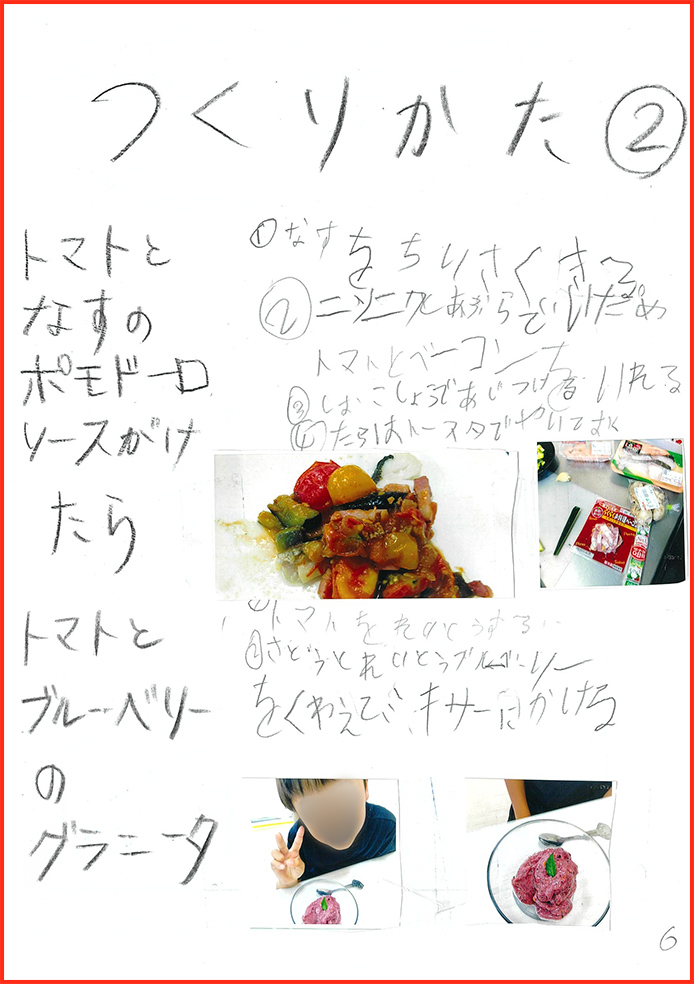 つくりかた②
トマトと
なすの
ポモドーロ
ソースがけ
たら
①なすをちいさくきる
②ニンニクとあぶらでいためため
トマトとベーコンを
いれる
③しおこしょうであじつける
④たらはトースタでやいてお
トマトと
ブルーベリー
の
グラニータ
①トマトをれいとうする
②さとうとれいとうブルーベリー
をくわえてミキサーにかける
6